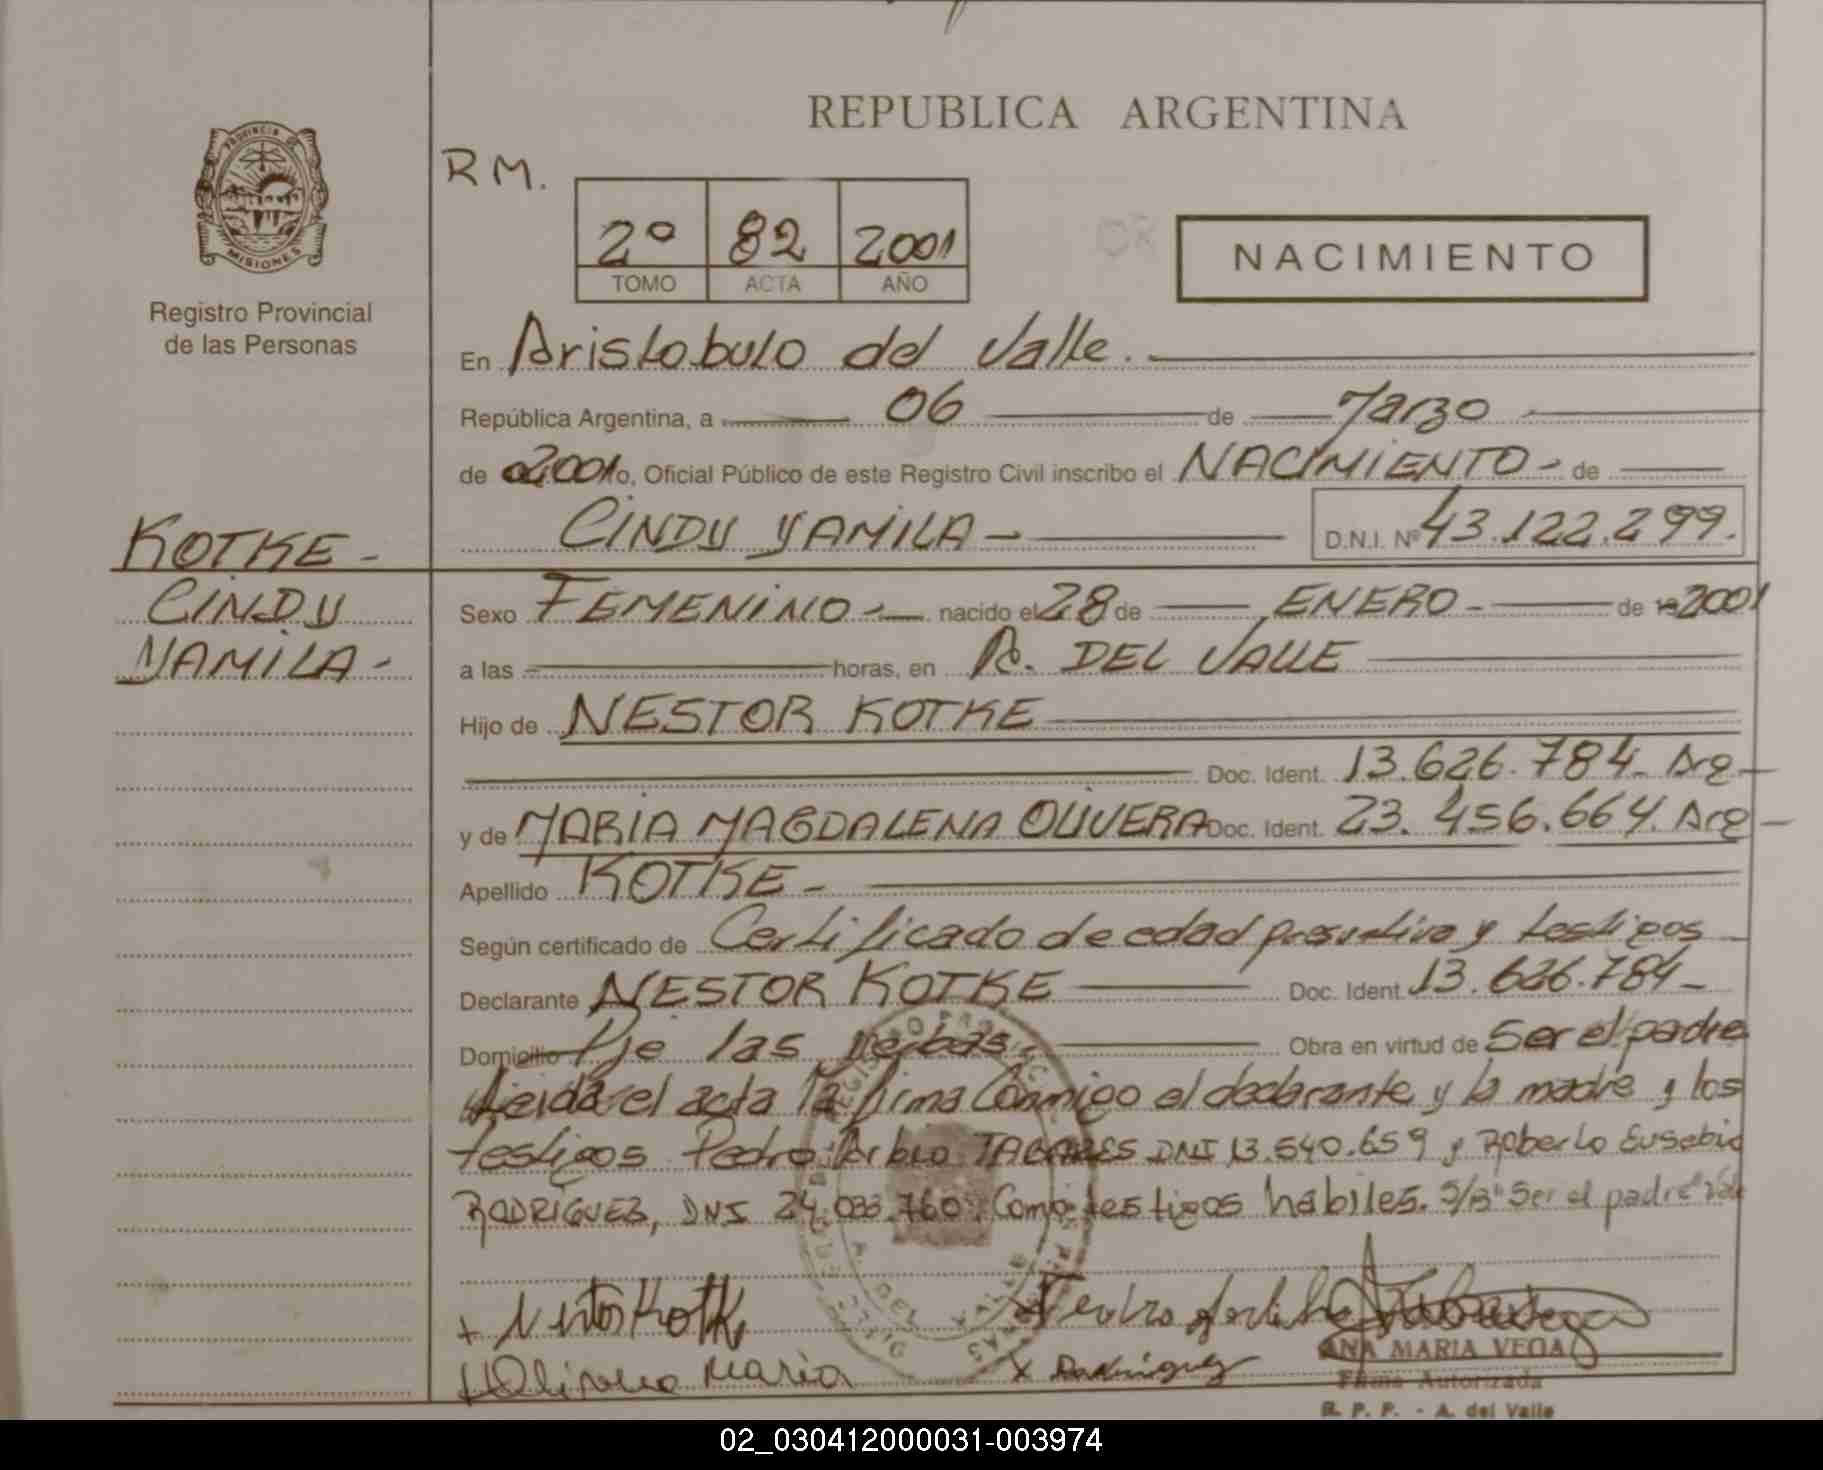 REPUBLICA ARGENTINA
PROVINCIA DE
MISIONES
Registro Provincial
de las Personas
RM.
2º 82 2001
TOMO ACTA AÑO
NACIMIENTO
En Aristobulo del Valle.
República Argentina, a 06 de Marzo
de 2001 o, Oficial Público de este Registro Civil inscribo el NACIMIENTO - de
CINDY YAMILA - D.N.I. Nº 43.122.299.
KOTKE -
CINDY
YAMILA -
Sexo FEMENINO - nacido el 28 de ENERO - de 2001
a las horas, en A. DEL VALLE
Hijo de NESTOR KOTKE
Doc. Ident. 13.626.784 - Arg -
y de MARIA MAGDALENA OLIVERA Doc. Ident. 23.456.664. Arg -
Apellido KOTKE -
Según certificado de Certificado de edad presuntiva y testigos
Declarante NESTOR KOTKE Doc. Ident. 13.626.784 -
Domicilio Pje las Obra en virtud de Ser el padre
Leida el acta la firma Conmigo el declarante y la madre y los
testigos Pedro TABARES DNI 13.540.659 y Roberto Eusebio
RODRIGUES, DNI 24.033.760. Como testigos habiles. S/B "Ser el padre"
+ Nestor Kotke
Olivera Maria
x Rodriguez
ANA MARIA VEGA
Firma Autorizada
R. P. P. - A. del Valle
02_030412000031-003974